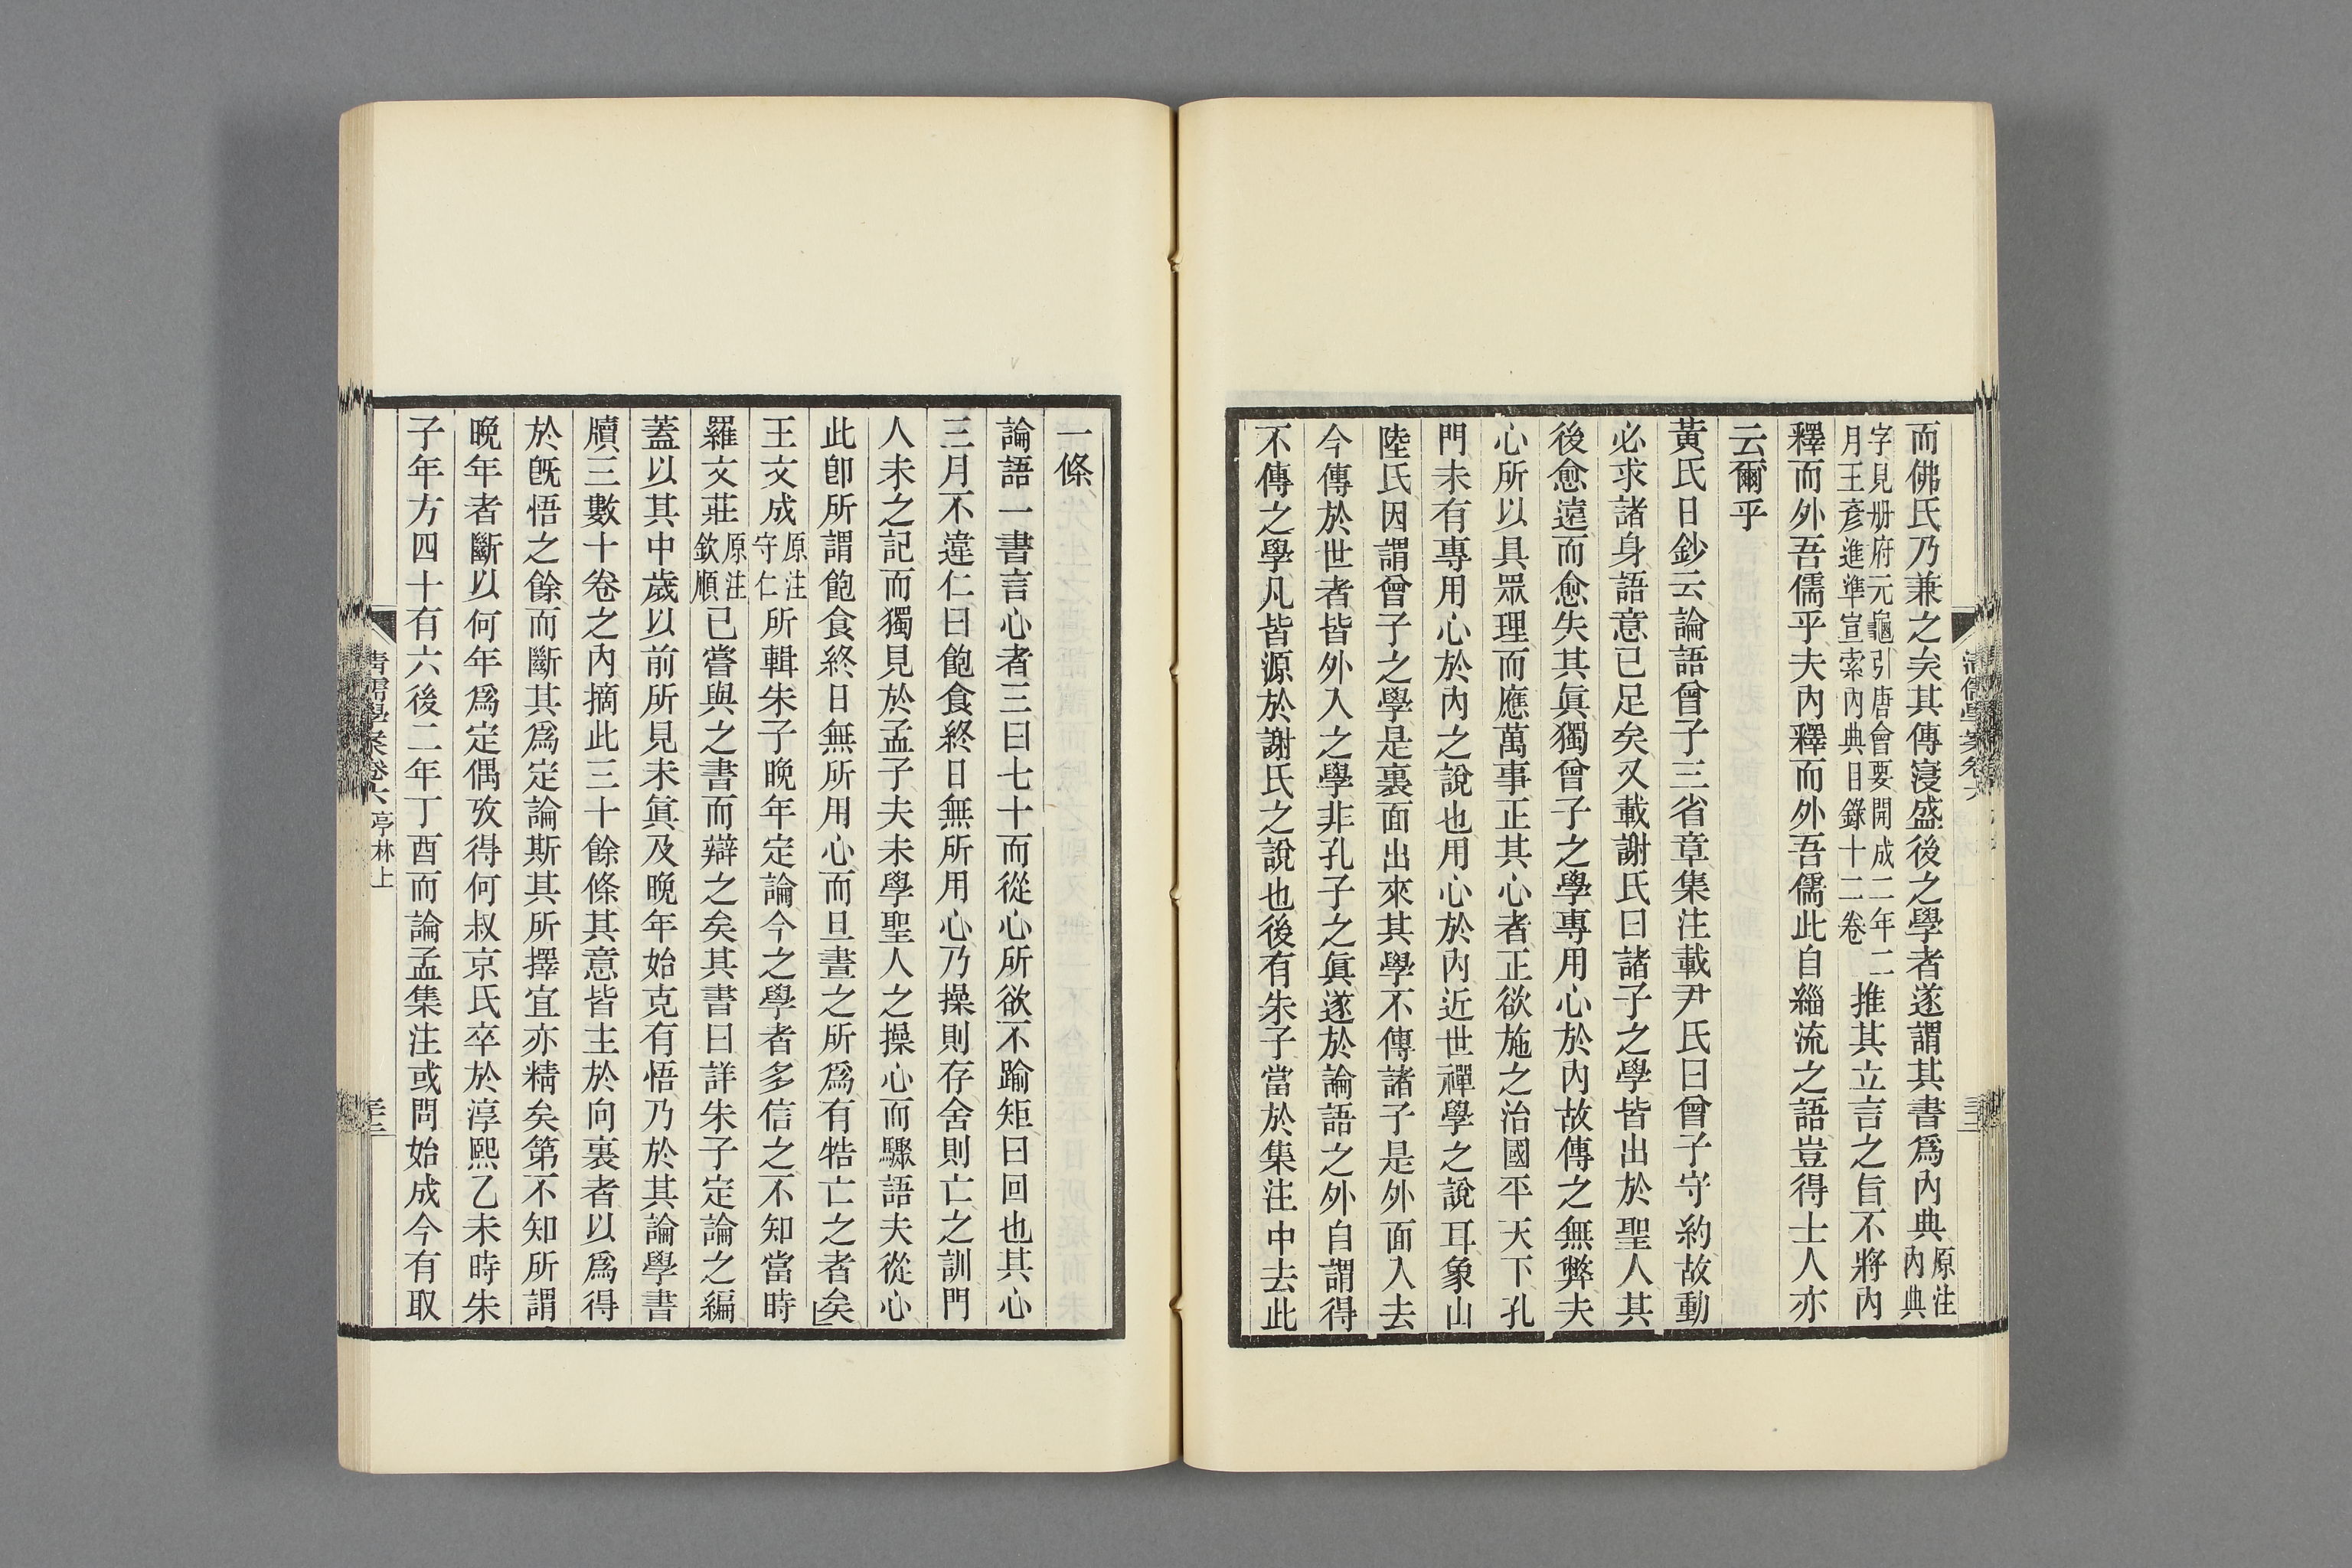 而佛氏乃兼之矣其傳寖盛後之學者遂謂其書爲內典原注內典
字見册府元龜引唐會要開成二年二
月王彥進準宣索內典目錄十二卷
推其立言之旨不將內
釋而外吾儒乎夫內釋而外吾儒此自緇流之語豈得士人亦
云爾乎
黃氏日鈔云論語曾子三省章集注載尹氏曰曾子守約故動
必求諸身語意已足矣又載謝氏曰諸子之學皆出於聖人其
後愈遠而愈失其眞獨曾子之學專用心於內故傳之無弊夫
心所以具眾理而應萬事正其心者正欲施之治國平天下孔
門未有專用心於內之說也用心於內近世禪學之說耳象山
陸氏因謂曾子之學是裏面出來其學不傳諸子是外面入去
今傳於世者皆外入之學非孔子之眞遂於論語之外自謂得
不傳之學凡皆源於謝氏之說也後有朱子當於集注中去此
一條
論語一書言心者三曰七十而從心所欲不踰矩曰回也其心
三月不違仁曰飽食終日無所用心乃操則存舍則亡之訓門
人未之記而獨見於孟子夫未學聖人之操心而驟語夫從心
此卽所謂飽食終日無所用心而旦晝之所爲有牿亡之者矣
王文成原注守仁所輯朱子晚年定論今之學者多信之不知當時
羅文莊原注欽順已嘗與之書而辯之矣其書曰詳朱子定論之編
蓋以其中歲以前所見未眞及晚年始克有悟乃於其論學書
牘三數十卷之內摘此三十餘條其意皆主於向裏者以爲得
於旣悟之餘而斷其爲定論斯其所擇宜亦精矣第不知所謂
晚年者斷以何年爲定偶攷得何叔京氏卒於淳熙乙未時朱
子年方四十有六後二年丁酉而論孟集注或問始成今有取
清儒學案卷六 亭林上